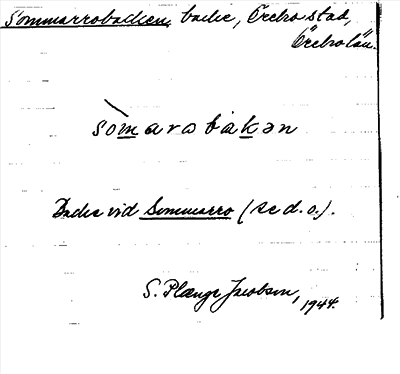 Sommarrobacken, backe, Örebro stad,
Örebro län.
sòmarobakən
Backe vid Sommarro (se d. o.).
S. Plænge Jacobson,
1944.